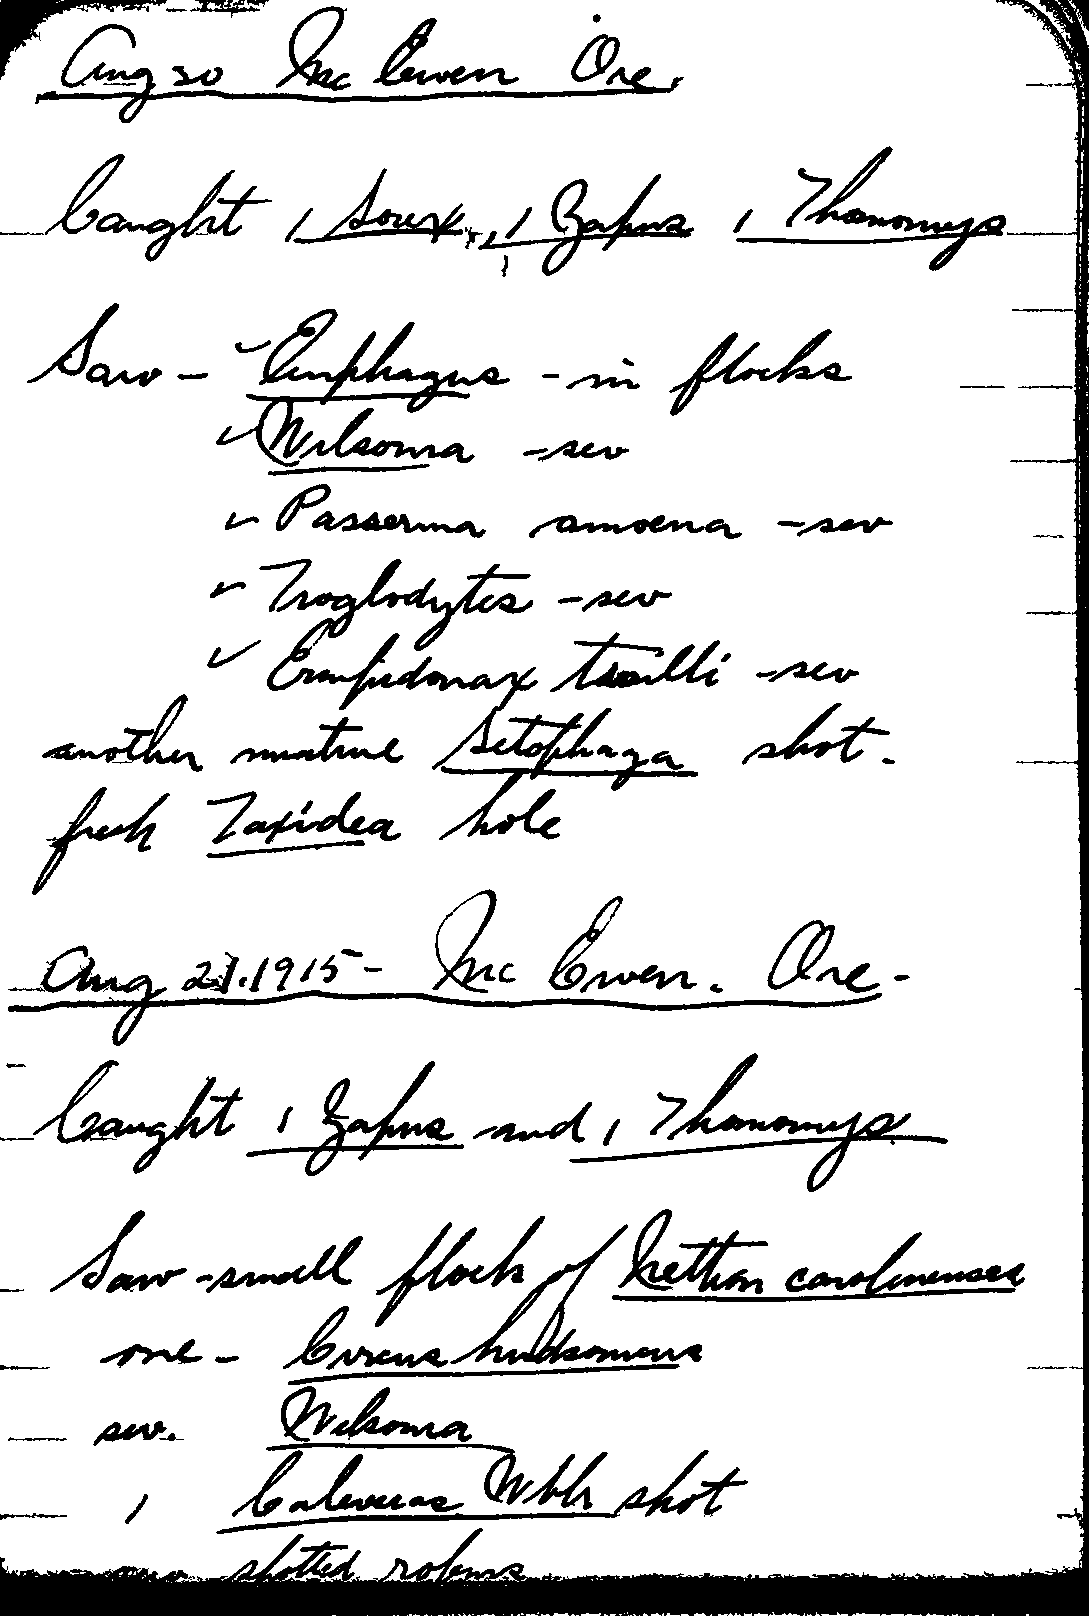 Aug 20 McEwen Ore.
Caught 1 Sorex, 1 Zapus 1 Thomomys
Saw - ✓ Euphagus - in flocks
✓ Wilsonia - sev
✓ Passerina amoena - sev
✓ Troglodytes - sev
✓ Empidonax trailli - sev
another mature Setophaga shot.
fresh Taxidea hole
Aug 21. 1915 - McEwen. Ore -
Caught 1 Zapus and 1 Thomomys
Saw - small flock of Nettion carolinenses
one - Circus hudsonius
sev. Wilsonia
1 Calaveras Wblr shot
spotted robins